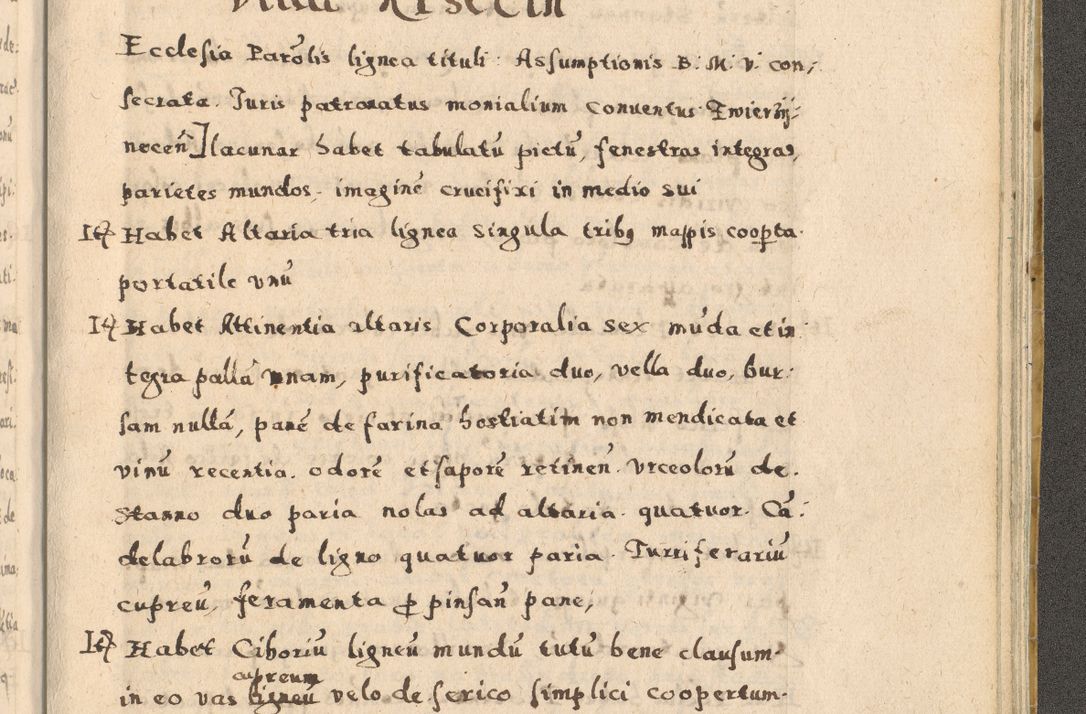 Ecclesia Parolis lignea tituli Assumptionis B: M: V: con,
secrata. Juris patronatus monialium conventus Zwierzy-
necen] lacunar habet tabulatū pictū, fenestras integras,
parietes mundos. imaginē crucifixi in medio sui
It Habet Altaria tria lignea singula tribq mappis coopta.
portatile vnū
It Habet Attinentia altaris Corporalia sex mūda et in
tegra pallā vnnam, purificatoria duo, vella duo, bur:
sam nullā, panē de farina hostiatim non mendicata et
vinū recentia. odorē et saporē retineñ. vrceolorū de.
stanno duo paria nolas ad altaria. quatuor. Cā:
delabrorū de ligno quatuor paria. Turriferariū
cupreū, feramenta p pinsañ pane,
It Habet Ciboriū ligneū mundū tutū bene clausum
cupreum
in eo vas ligneū velo de serico simplici coopertum.